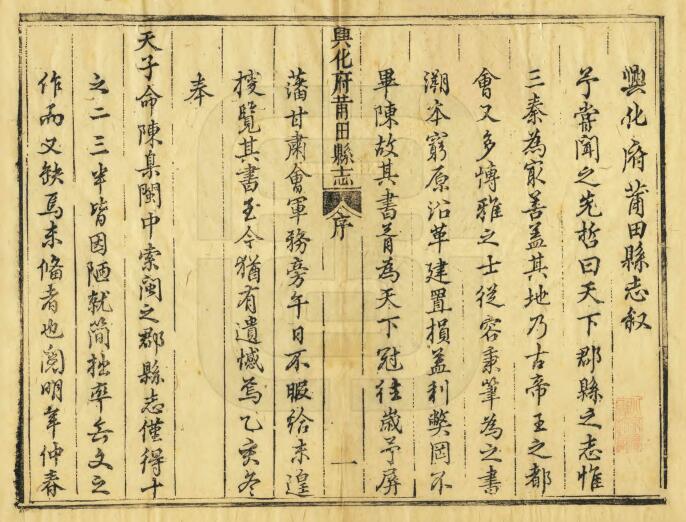 興化府莆田縣志叙
予嘗聞之先哲曰天下郡縣之志惟
三秦為冣善蓋其地乃古帝王之都
會又多博雅之士從容秉筆為之書
溯本窮原沿革建置損益利弊罔不
畢陳故其書甞為天下冠徃歲予屏
興化府莆田縣志
序
一
藩甘肅會軍務旁午日不暇給未遑
披覽其書至今猶有遺憾焉乙亥冬
奉
天子命陳臬閩中索閩之郡縣志僅得十
之二三半皆因陋就簡拙率無文之
作而又缺焉未脩者也閱明年仲春